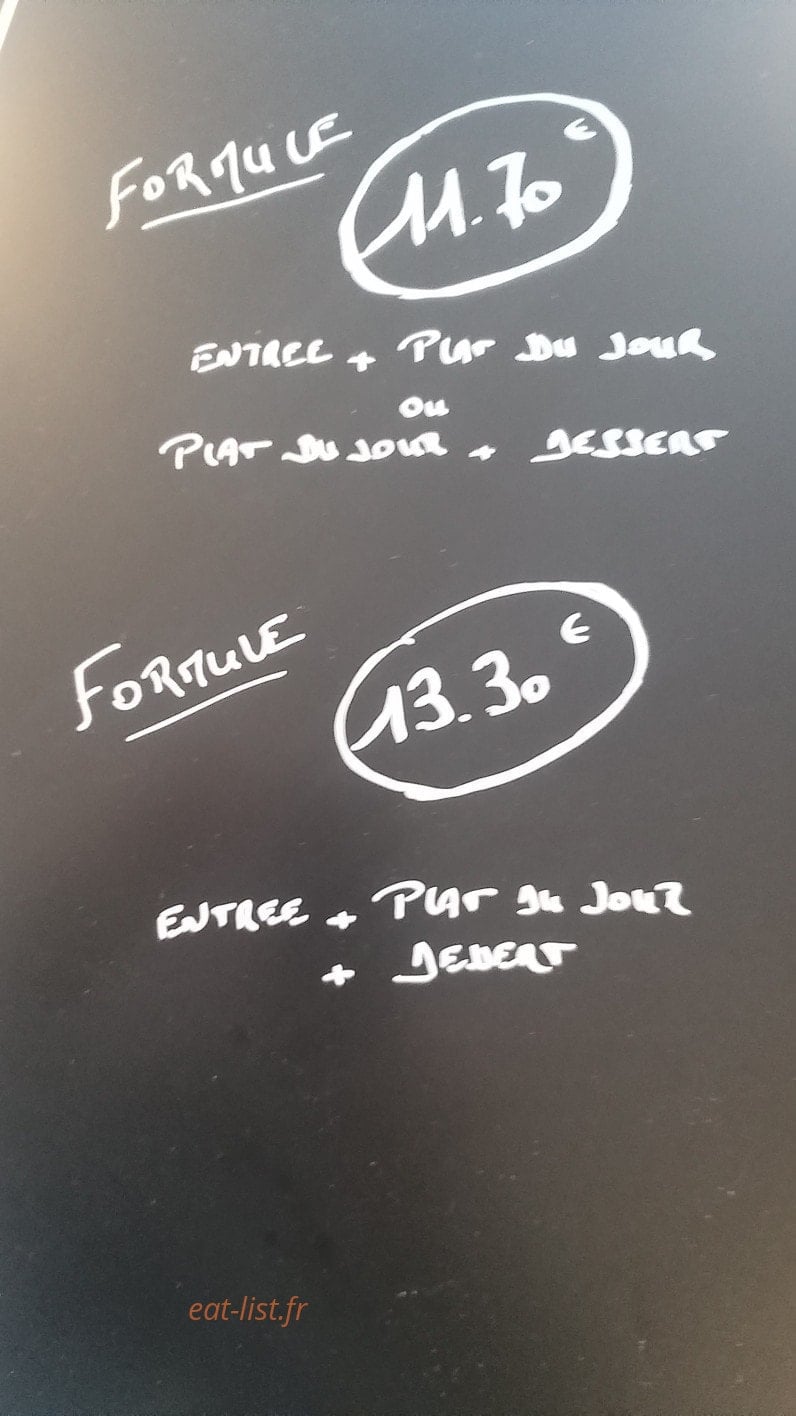 FORMULE 11.70 €
ENTREE + PLAT DU JOUR
OU
PLAT DU JOUR + DESSERT
FORMULE 13.30 €
ENTREE + PLAT DU JOUR
+ DESSERT
eat-list.fr